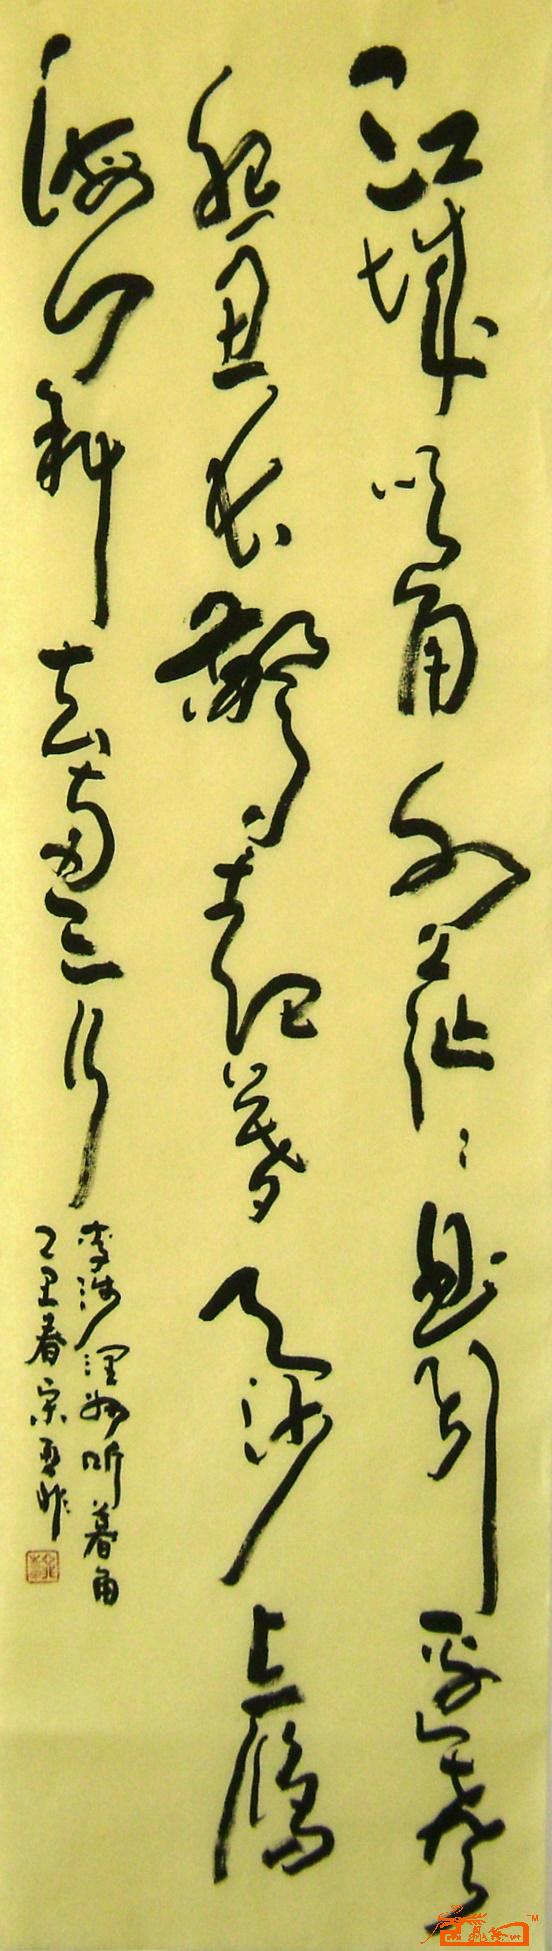 江城吹角水茫茫曲引邊聲
怨思长驚起暮天沙上雁
海门斜去两三行
李涉潤州听暮角
丑春宋